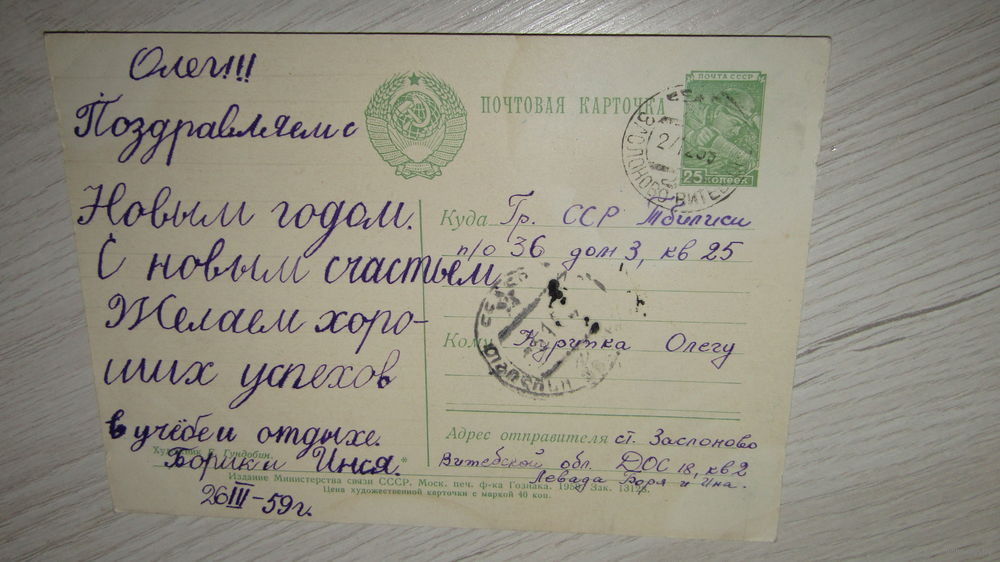 Олег!!!
Поздравляем с
Новым годом.
С новым счастьем
Желаем хоро-
ших успехов
в учёбе и отдыхе.
Борик и Инся.
26 III-59г.
Художник Е. Гундобин.
ПОЧТОВАЯ КАРТОЧКА
ПОЧТА СССР
25 КОПЕЕК
ЗАСЛОНОВО ВИТЕБ
Куда Гр. ССР Тбилиси
п/о 36 дом 3, кв 25
Кому Курупка Олегу
Адрес отправителя ст. Заслоново
Витебской обл. ДОС 18, кв 2
Левада Боря и Ина.
Издание Министерства связи СССР. Моск. печ. ф-ка Гознака. Зак.
Цена художественной карточки с маркой 40 коп.